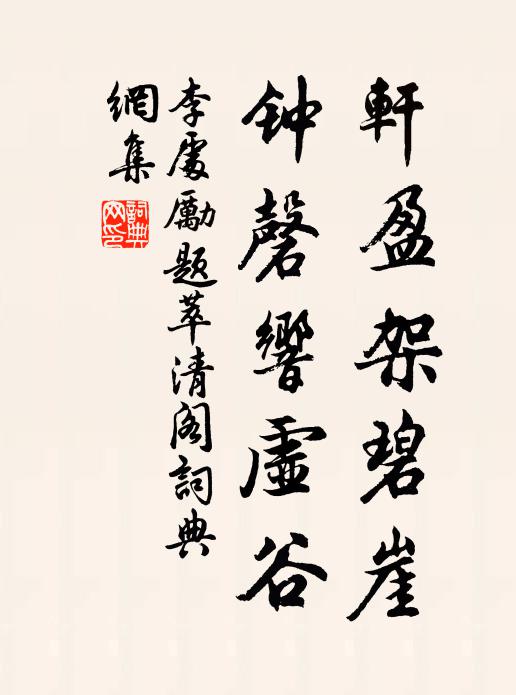 軒盈架碧崖
钟磬響虛谷
李處勵題萃清阁詞典
網集
詞典網印